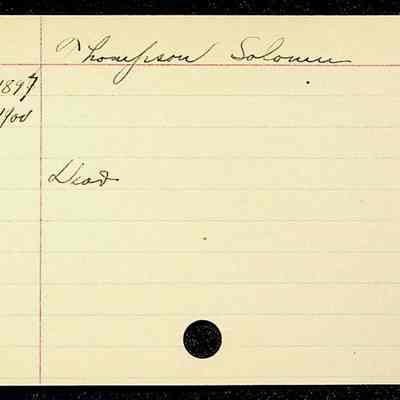 Thompson Solomn
1897
1/00
Dead